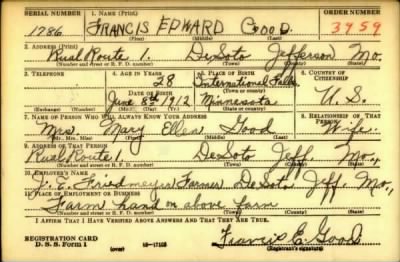 SERIAL NUMBER 1. NAME (Print) ORDER NUMBER
1286 FRANCIS EDWARD GOOD. 3459
(First) (Middle) (Last)
2. ADDRESS (Print)
Rual Route 1. DeSoto Jefferson Mo.
(Number and street or R. F. D. number) (Town) (County) (State)
3. TELEPHONE 4. AGE IN YEARS 5. PLACE OF BIRTH 6. COUNTRY OF CITIZENSHIP
28 International Falls
DATE OF BIRTH (Town or county)
June 8th 1912 Minnesota U. S.
(Exchange) (Number) (Mo.) (Day) (Yr.) (State or country)
7. NAME OF PERSON WHO WILL ALWAYS KNOW YOUR ADDRESS 8. RELATIONSHIP OF THAT PERSON
Mrs. Mary Ellen Good Wife.
(Mr., Mrs., Miss) (First) (Middle) (Last)
9. ADDRESS OF THAT PERSON
Rual Route 1 DeSoto Jeff. Mo.,
(Number and street or R. F. D. number) (Town) (County) (State)
10. EMPLOYER'S NAME
Farmer DeSoto Jeff. Mo.,
11. PLACE OF EMPLOYMENT OR BUSINESS
Farm hand on above farm
(Number and street or R. F. D. number) (Town) (County) (State)
I AFFIRM THAT I HAVE VERIFIED ABOVE ANSWERS AND THAT THEY ARE TRUE.
REGISTRATION CARD
D. S. S. Form 1 (over) 16-17105 Francis E. Good
(Registrant's signature)